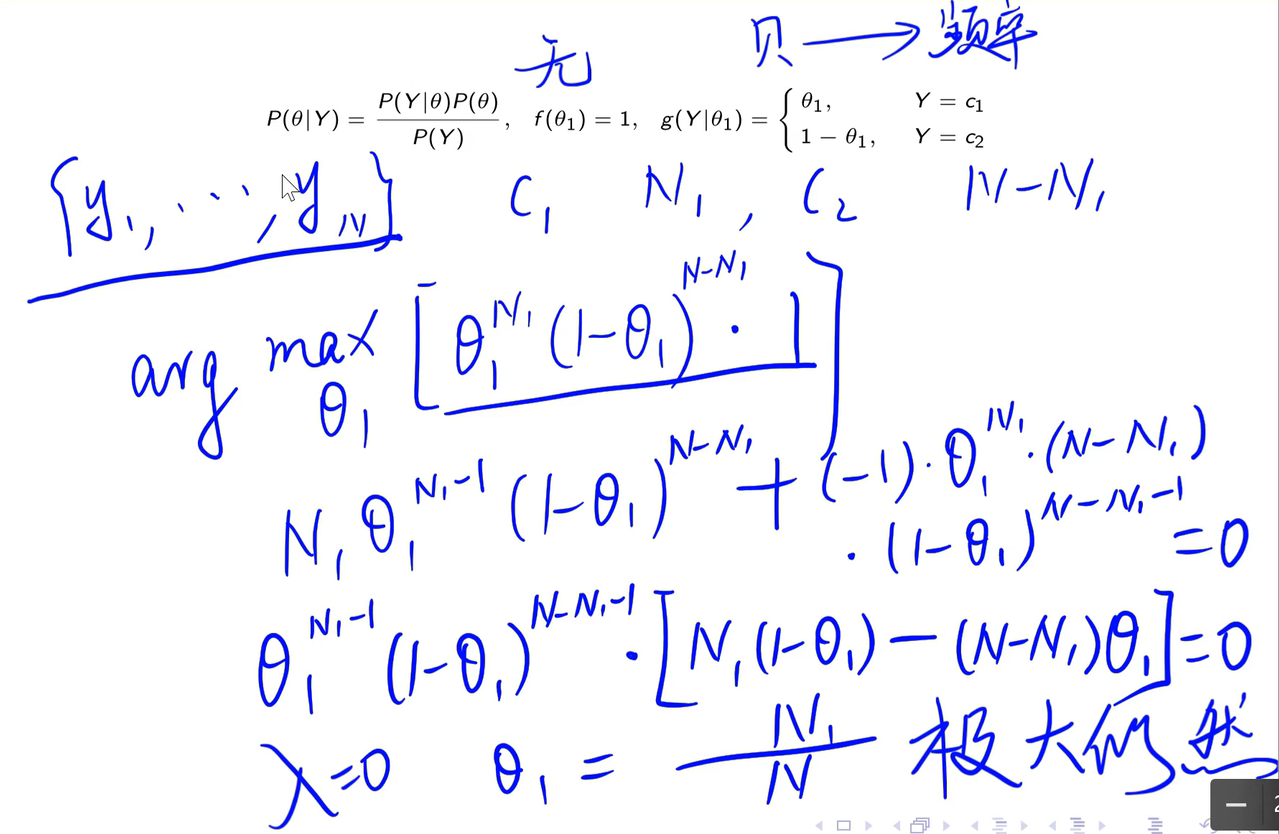 无 贝 → 频率
P(θ|Y) = P(Y|θ)P(θ) / P(Y), f(θ₁) = 1, g(Y|θ₁) = { θ₁, Y = c₁
1 − θ₁, Y = c₂
{y₁, ⋯, y_N} C₁ N₁, C₂ N−N₁
arg max_θ₁ [θ₁^N₁ (1−θ₁)^(N−N₁) · 1]
N₁θ₁^(N₁−1) (1−θ₁)^(N−N₁) + (−1)·θ₁^N₁·(N−N₁)
·(1−θ₁)^(N−N₁−1) =0
θ₁^(N₁−1) (1−θ₁)^(N−N₁−1) · [N₁(1−θ₁) − (N−N₁)θ₁]=0
λ=0 θ₁ = N₁/N 极大似然
2